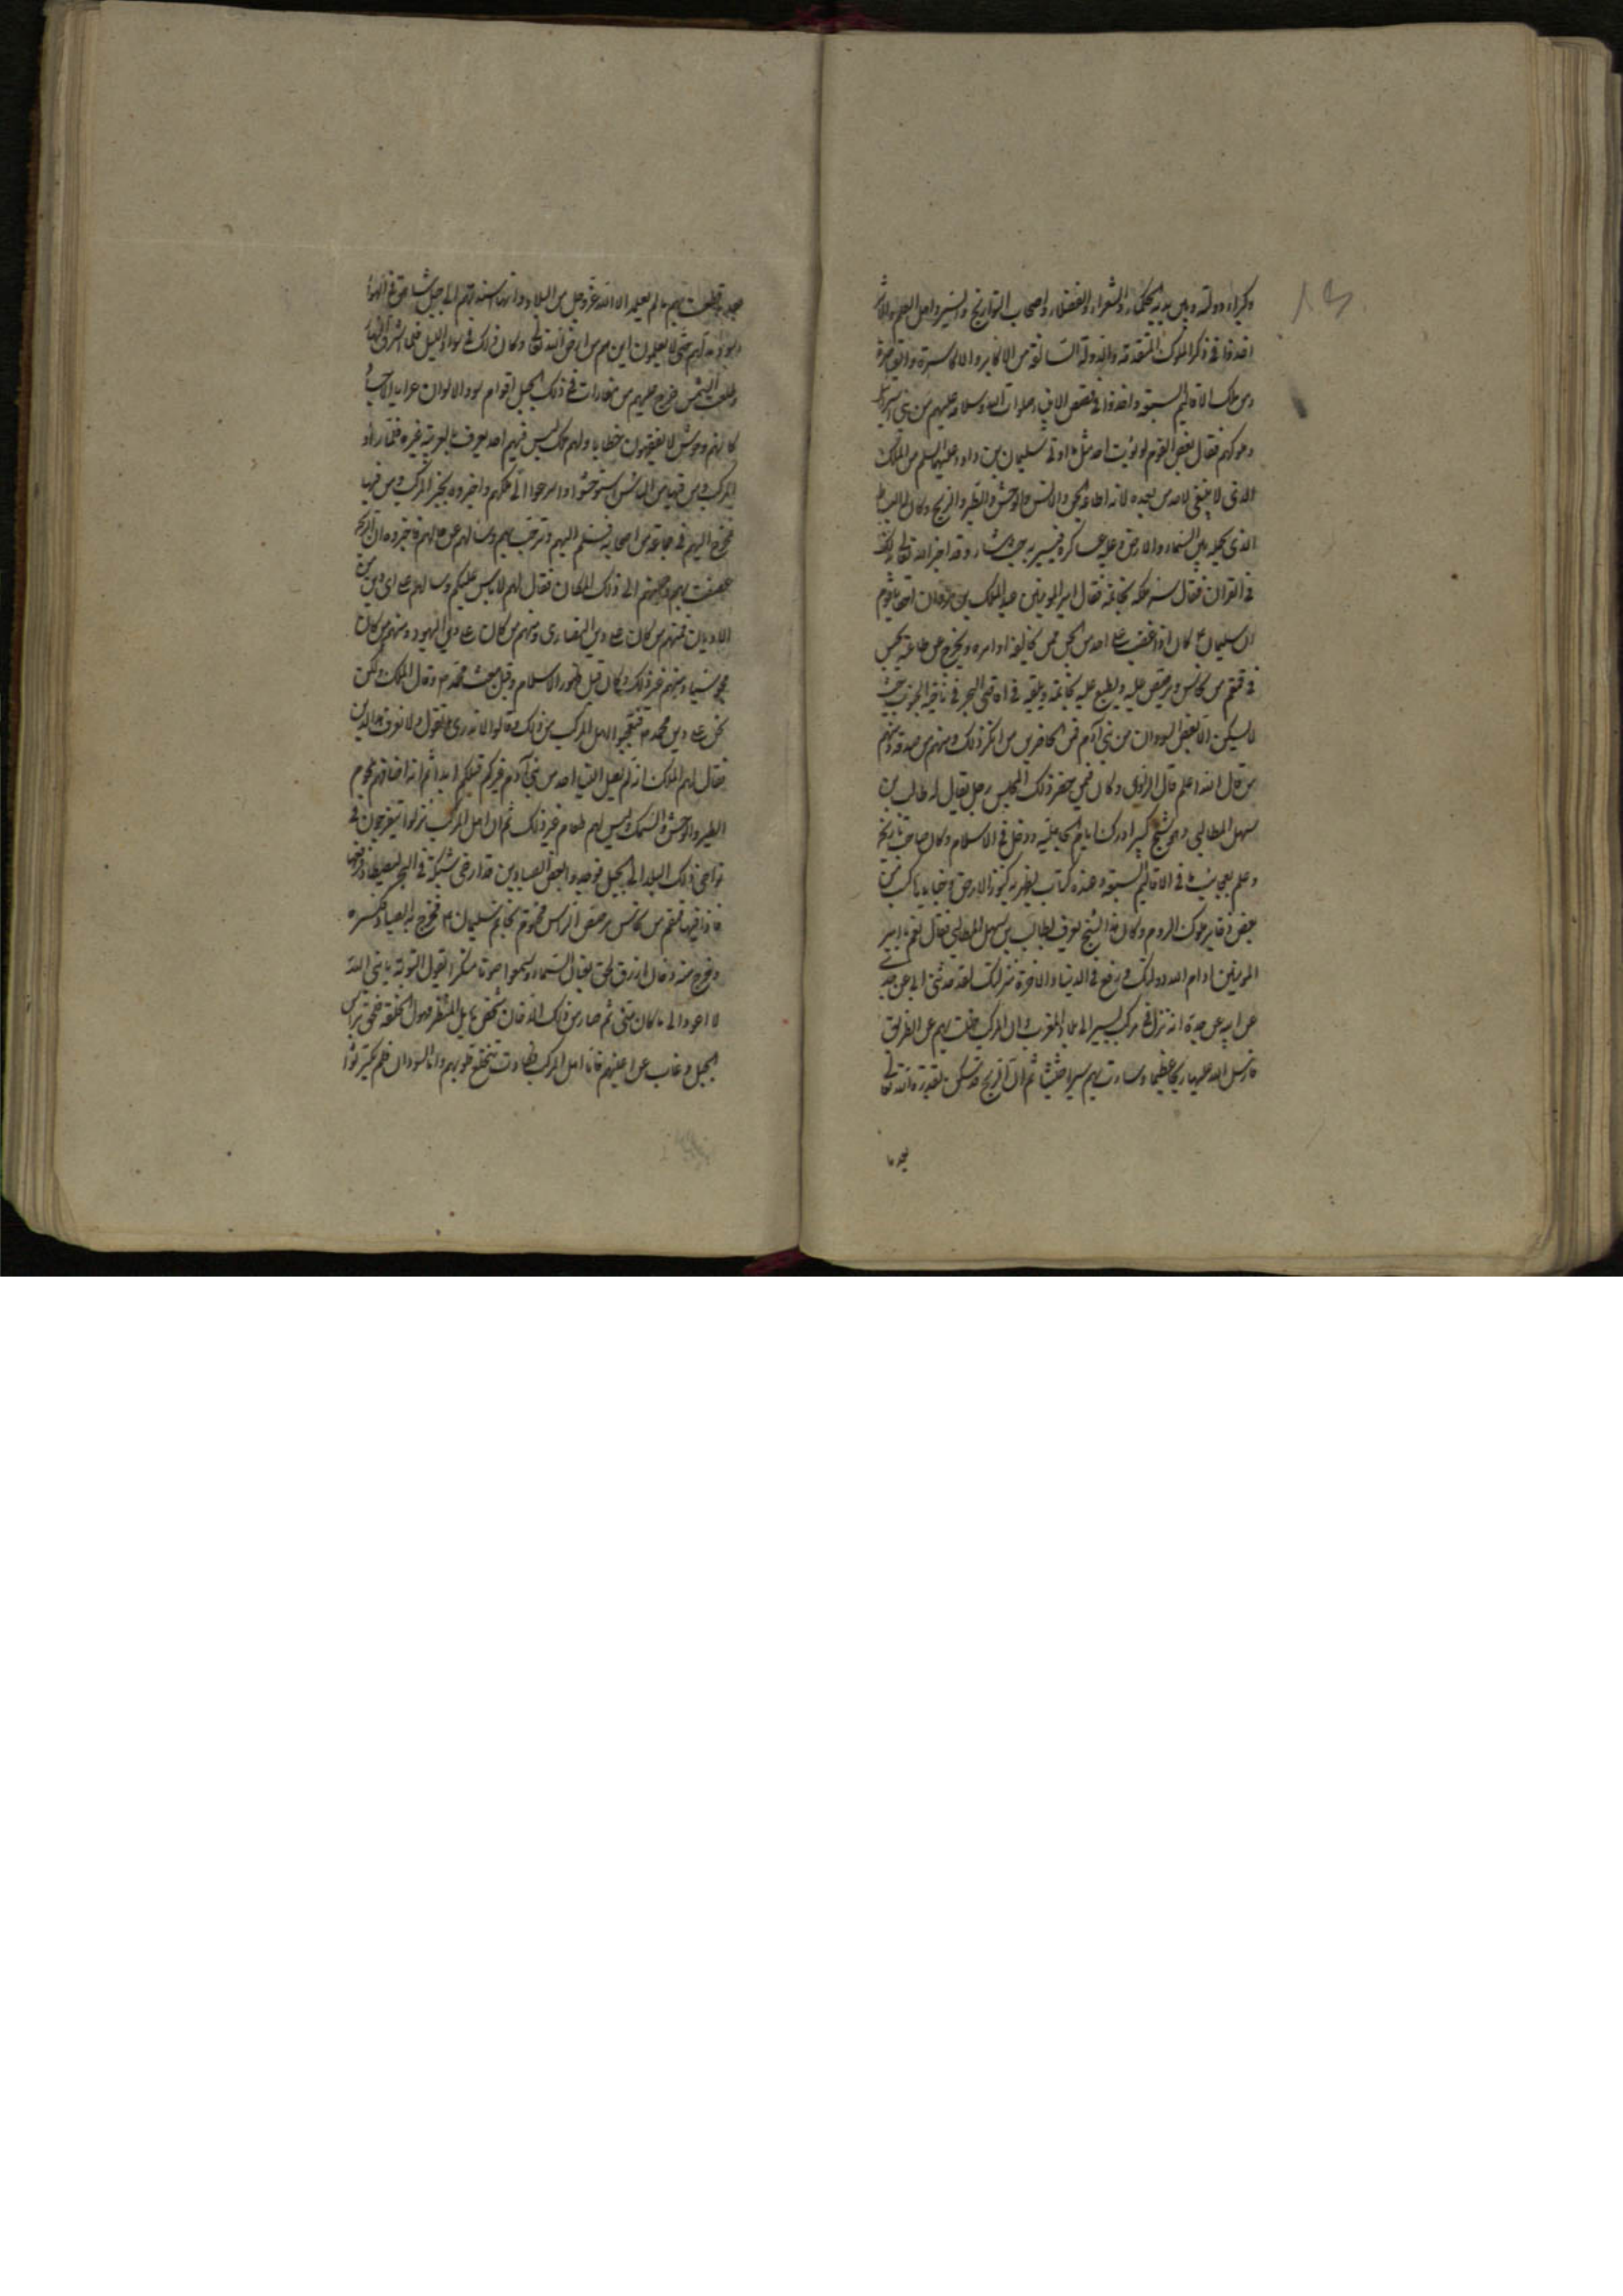 وكبراء دولته وبين يديه الحكماء والشعراء والفضلاء واصحاب التواريخ والسير واهل العلم والاثر
اخذوا فى ذكر الملوك المتقدمة والدولة السالفة من الاكابر والاكاسرة والقياصرة
ومن ملك الاقاليم السبعة واخذوا فى قصص الانبياء صلوات الله وسلامه عليهم من بنى اسرائيل
وملوكهم فقال بعض القوم لو اوتيت احد مثل ما اوتى سليمان بن داود عليهما السلم من الملك
الذى لا ينبغى لاحد من بعده لانه اطاعه الجن والانس والوحش والطير والريح وكان له البساط
الذى يحمله بين السماء والارض وعليه عساكره فيسير به حيث شاء وقد اخبر الله تعالى بذلك
فى القران فقال امير المومنين عبد الملك بن مروان يا قوم
ان سليمان كان اذا غضب على احد من الجن ممن يخالف اوامره ويخرج عن طاعته يحبس
فى قمقم من نحاس ويرصص عليه ويطبع عليه بخاتمه ويلقيه فى اقصى البحر فى ناحية الجنوب حيث
لا يسكن الا بعض السودان من بنى آدم فمن الحاضرين من انكر ذلك ومنهم من صدقه ومنهم
من قال الله اعلم قال الراوى وكان فيمن حضر ذلك المجلس رجل يقال له طالب بن
سهل المطالبى وهو شيخ كبير ادرك ايام الجاهلية ودخل فى الاسلام وكان صاحب تاريخ
وعلم بعجايب ما فى الاقاليم السبعة وعنده كتاب يظهر به كنوز الارض وخباياها كسب من
بعض ذخاير ملوك الروم وكان هذا الشيخ يعرف بطالب بن سهل المطالبى فقال نعم يا امير
المومنين ادام الله دولتك ورفع فى الدنيا والاخرة منزلتك لقد حدثنى ابى عن جدى
عن ابيه عن جده انه نزل فى مركب يسير الى بلاد المغرب وان المركب ضلت بهم عن الطريق
فارسل الله عليها ريحا عظيما وسارت بهم سيرا حثيثا ثم ان الريح قد سكن بقدرة الله تعالى
بعد ما
بعد ما قطعت بهم ما لم يعلمه الا الله عز وجل من البلاد وانتها سندانهم الى جبل شاهق فى الهواء
حتى لا يعلمون اين هم من ارض الله تعالى وكان ذلك فى سواد الليل فلما اشرق النهار
وطلعت الشمس خرج عليهم من مغارات فى ذلك الجبل اقوام سود الالوان عراة الاجساد
كانهم وحوش لا يفقهون خطابا ولهم ملك ليس فيهم احد يعرف بالعربية غيره فلما راوا
المركب ومن فيها من الناس استوحشوا واسرعوا الى ملكهم واخبروه بخبر المركب ومن فيها
فخرج اليهم فى جماعة من اصحابه فسلم اليهم وترحب بهم وسالهم عن حالهم فاخبروه ان الريح
عصفت بهم الى ذلك المكان فقال لهم لا باس عليكم وسالهم على اى دين من
الاديان فمنهم من كان على دين النصارى ومنهم من كان على دين اليهود ومنهم من كان
مجوسيا ومنهم غير ذلك وكان قبل ظهور الاسلام وقبل مبعث محمد م وقال الملك ولكن
نحن على دين محمد م فتعجبوا اهل المركب من ذلك وقالوا لا ندرى ما تقول ولا نعرف هذا الدين
فقال لهم الملك انه لم يصل الينا احد من بنى آدم غيركم قبلكم ابدا ثم انه اضافهم بلحوم
الطير والوحش والسمك وليس لهم طعام غير ذلك ثم ان اهل المركب نزلوا يتفرجون فى
نواحى ذلك البلد الى الجبل فوجدوا بعض الصيادين قد ارخى شبكة فى البحر ليصطاد فرفعها
فاذا فيها قمقم من نحاس مرصص الراس مختوم بخاتم سليمان م فخرج به الصياد فكسره
وخرج منه دخان ازرق لحق بعنان السماء وسمعوا صوتا منكرا يقول التوبة يا نبى الله
لا اعود الى ما كان منى ثم صار من ذلك الدخان شخص هايل المنظر مهول الخلقة فلحق براس
الجبل وغاب عن اعينهم فاما اهل المركب فكادت تنخلع قلوبهم واما السودان فلم يكترثوا